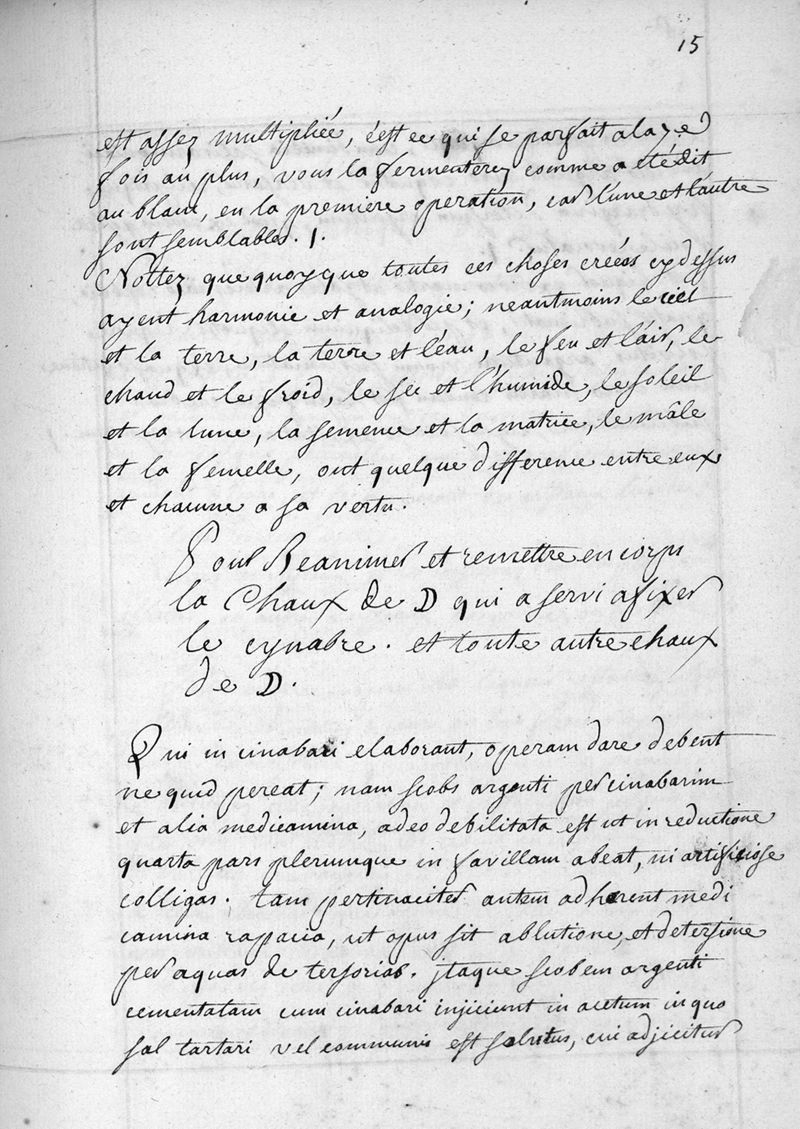 15
est assez multipliée, c'est ce qui se parfait a la 7e
fois au plus, vous la fermenterez comme a eté dit
au blanc, en la premiere operation, car l'une et l'autre
sont semblables. 1.
Nottez que quoyque toutes ces choses créées cy dessus
ayent harmonie et analogie; neantmoins le ciel
et la terre, la terre et l'eau, le feu et l'air, le
chaud et le froid, le sec et l'humide, le soleil
et la lune, la semence et la matrice, le mâle
et la femelle, ont quelque difference entre eux
et chacune a sa vertu.
Pour Reanimer et remettre en corps
la Chaux de D qui a servi a fixer
le cynabre. et toute autre chaux
de D.
Qui in cinabari elaborant, operam dare debent
ne quid pereat; nam scobs argenti per cinabarim
et alia medicamina, adeo debilitata est ut in reductione
quarta pars plerumque in favillam abeat, ni artificiose
colligas. tam pertinaciter autem adherent medi
camina rapacia, ut opus sit ablutione, et detersione
per aquas de tersorias. jtaque scobem argenti
cementatam cum cinabari injiciunt in acetum in quo
sal tartari vel communis est solutus, cui adjicitur